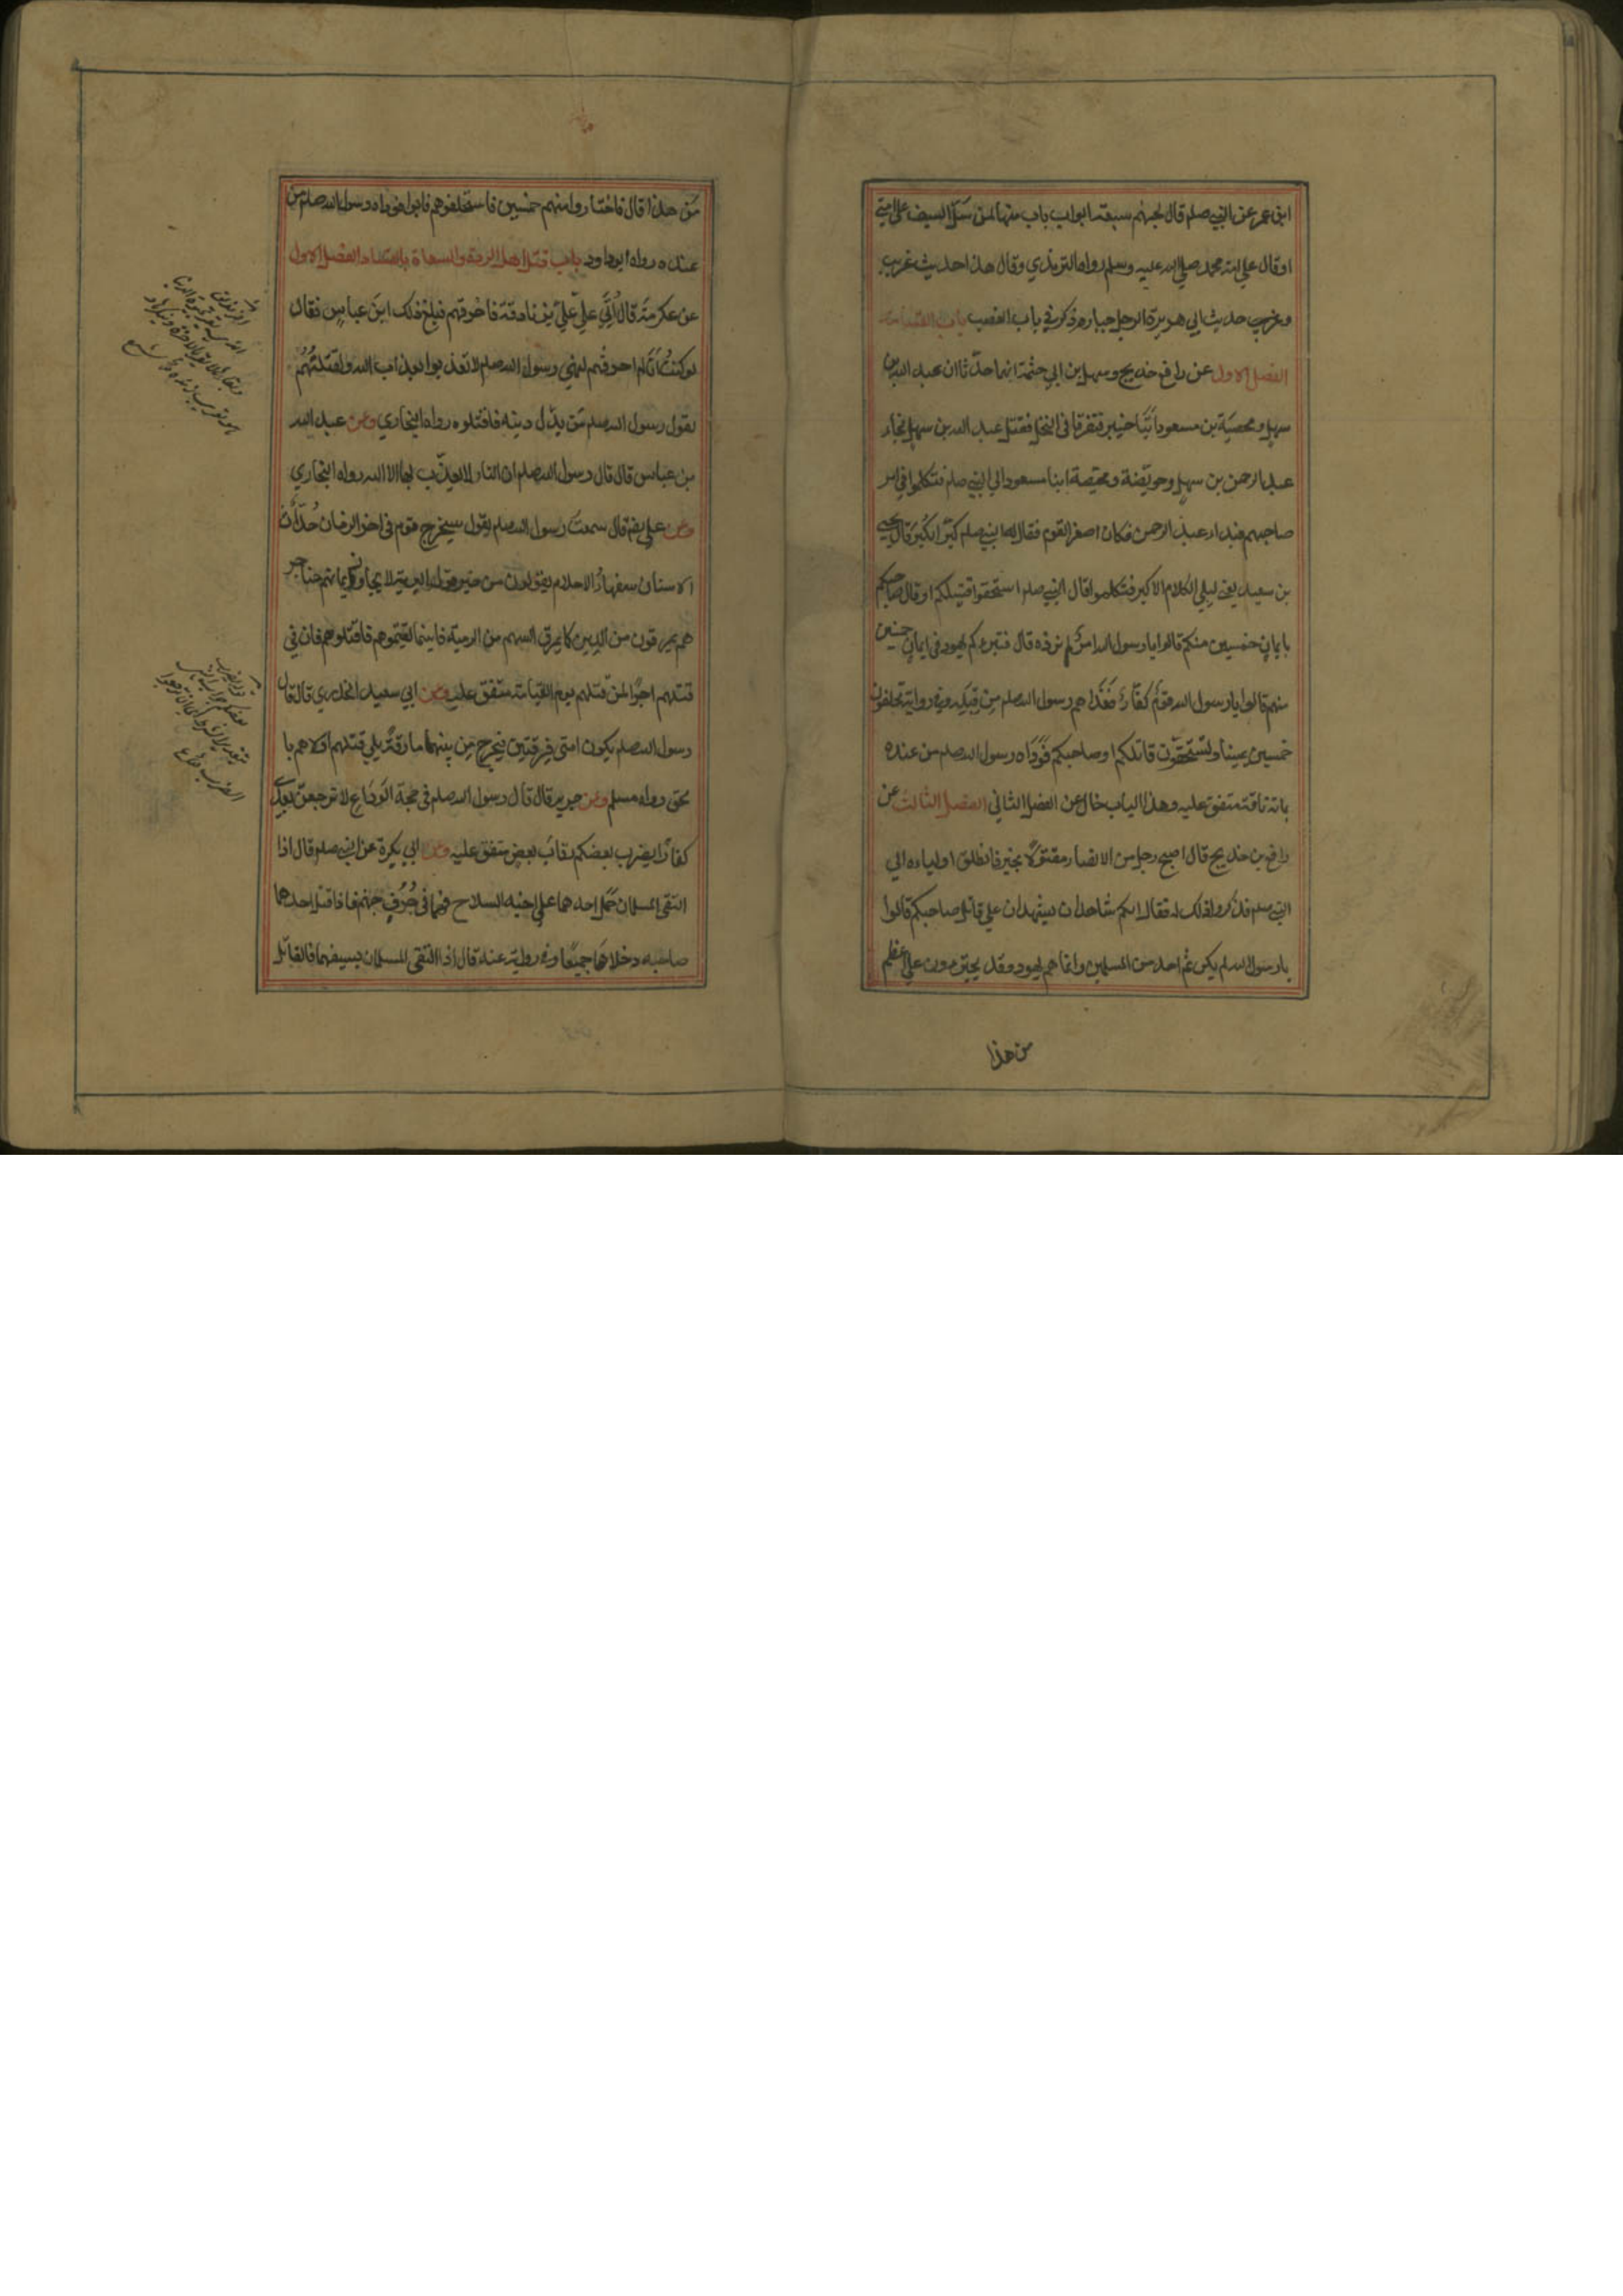 ابن عمر عن النبي صلم قال لجهنم سبعة ابواب باب منها لمن سل السيف على امتي
او قال على امة محمد صلى الله عليه وسلم رواه الترمذي وقال هذا حديث غريب
وغريب حديث ابي هريرة الرجل جبار وذكر في باب الغصب باب القسامة
الفصل الاول عن رافع بن خديج وسهل بن ابي حثمة انهما حدثا ان عبد الله بن
سهل ومحيصة بن مسعود اتيا خيبر فتفرقا في النخل فقتل عبد الله بن سهل فجاء
عبد الرحمن بن سهل وحويصة ومحيصة ابنا مسعود الى النبي صلم فتكلموا في امر
صاحبهم فبداء عبد الرحمن فكان اصغر القوم فقال له النبي صلم كبر الكبر قال يحيى
بن سعيد يعني ليلي الكلام الاكبر فتكلموا فقال النبي صلم استحقوا قتيلكم او قال صاحبكم
بايمان خمسين منكم قالوا يا رسول الله امر لم نره قال فتبرءكم يهود في ايمان خمسين
منهم قالوا يا رسول الله قوم كفار ففداهم رسول الله صلم من قبله وفي رواية تحلفون
خمسين يمينا وتستحقون قاتلكم او صاحبكم فوداه رسول الله صلم من عنده
بمائة ناقة متفق عليه وهذا الباب خال عن الفصل الثاني الفصل الثالث عن
رافع بن خديج قال اصبح رجل من الانصار مقتولا بخيبر فانطلق اولياءه الى
النبي صلم فذكروا ذلك له فقال الكم شاهدان يشهدان على قاتل صاحبكم قالوا
يا رسول الله لم يكن ثم احد من المسلمين وانما هم يهود وقد يجترءون على اعظم
من هذا
من هذا قال فاختاروا منهم خمسين فاستحلفوهم فابوا فوداه رسول الله صلم من
عنده رواه ابوداود باب قتل اهل الردة والسعاة بالفساد الفصل الاول
عن عكرمة قال اتي علي بزنادقة فاحرقهم فبلغ ذلك ابن عباس فقال
لو كنت انا لم احرقهم لنهي رسول الله صلم لا تعذبوا بعذاب الله ولقتلتهم
لقول رسول الله صلم من بدل دينه فاقتلوه رواه البخاري وعن عبد الله
بن عباس قال قال رسول الله صلم ان النار لا يعذب بها الا الله رواه البخاري
وعن علي رضه قال سمعت رسول الله صلم يقول سيخرج قوم في اخر الزمان حداث
الاسنان سفهاء الاحلام يقولون من خير قول البرية لا يجاوز ايمانهم حناجر
هم يمرقون من الدين كما يمرق السهم من الرمية فاينما لقيتموهم فاقتلوهم فان في
قتلهم اجرا لمن قتلهم يوم القيامة متفق عليه وعن ابي سعيد الخدري قال قال
رسول الله صلم يكون امتي فرقتين فيخرج من بينهما مارقة يلي قتلهم اولاهم با
لحق رواه مسلم وعن جرير قال قال رسول الله صلم في حجة الوداع لا ترجعن بعدي
كفارا يضرب بعضكم رقاب بعض متفق عليه وعن ابي بكرة عن النبي صلم قال اذا
التقى المسلمان حمل احدهما على اخيه السلاح فهما في جرف جهنم فاذا قتل احدهما
صاحبه دخلاها جميعا وفي رواية عنه قال اذا التقى المسلمان بسيفهما فالقاتل